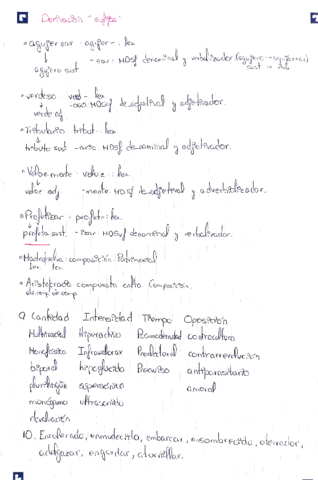 Derivación "sufijo"
° agujerear · agujer- : lex
agujero sust - ear · MDsf denominal y verbalizador (agujero → agujerear)
sust → verb
° verdoso verd- lex
verde adj -oso MDsf deadjetival y adjetivador.
° Tributario tribut- : lex
tributo sust -ario MDsf denominal y adjetivador.
° Velozmente · veloz- : lex
veloz adj -mente MDsf deadjetival y adverbializador.
° Profetizar : profet- : lex
profeta sust. - izar MDsuf denominal y verbalizador.
° Madreselva : composición : Patrimonial
lex lex
° Aristócrata compuesto culto Composición.
9 Cantidad Intensidad Tiempo Oposición
Multirracial Hiperactivo Posmodernidad contracultura
Monofásico Infravalorar Predoctoral contrarrevolución
bipolar hipoglucido Preaviso antiparasitario
plurilingüe supersónico amoral
monógamo ultrasonido
devaluación
10. Encolerado, enmudecido, embarcar, ensombrecido, aterrador,
adelgazar, engordar, atornillar.